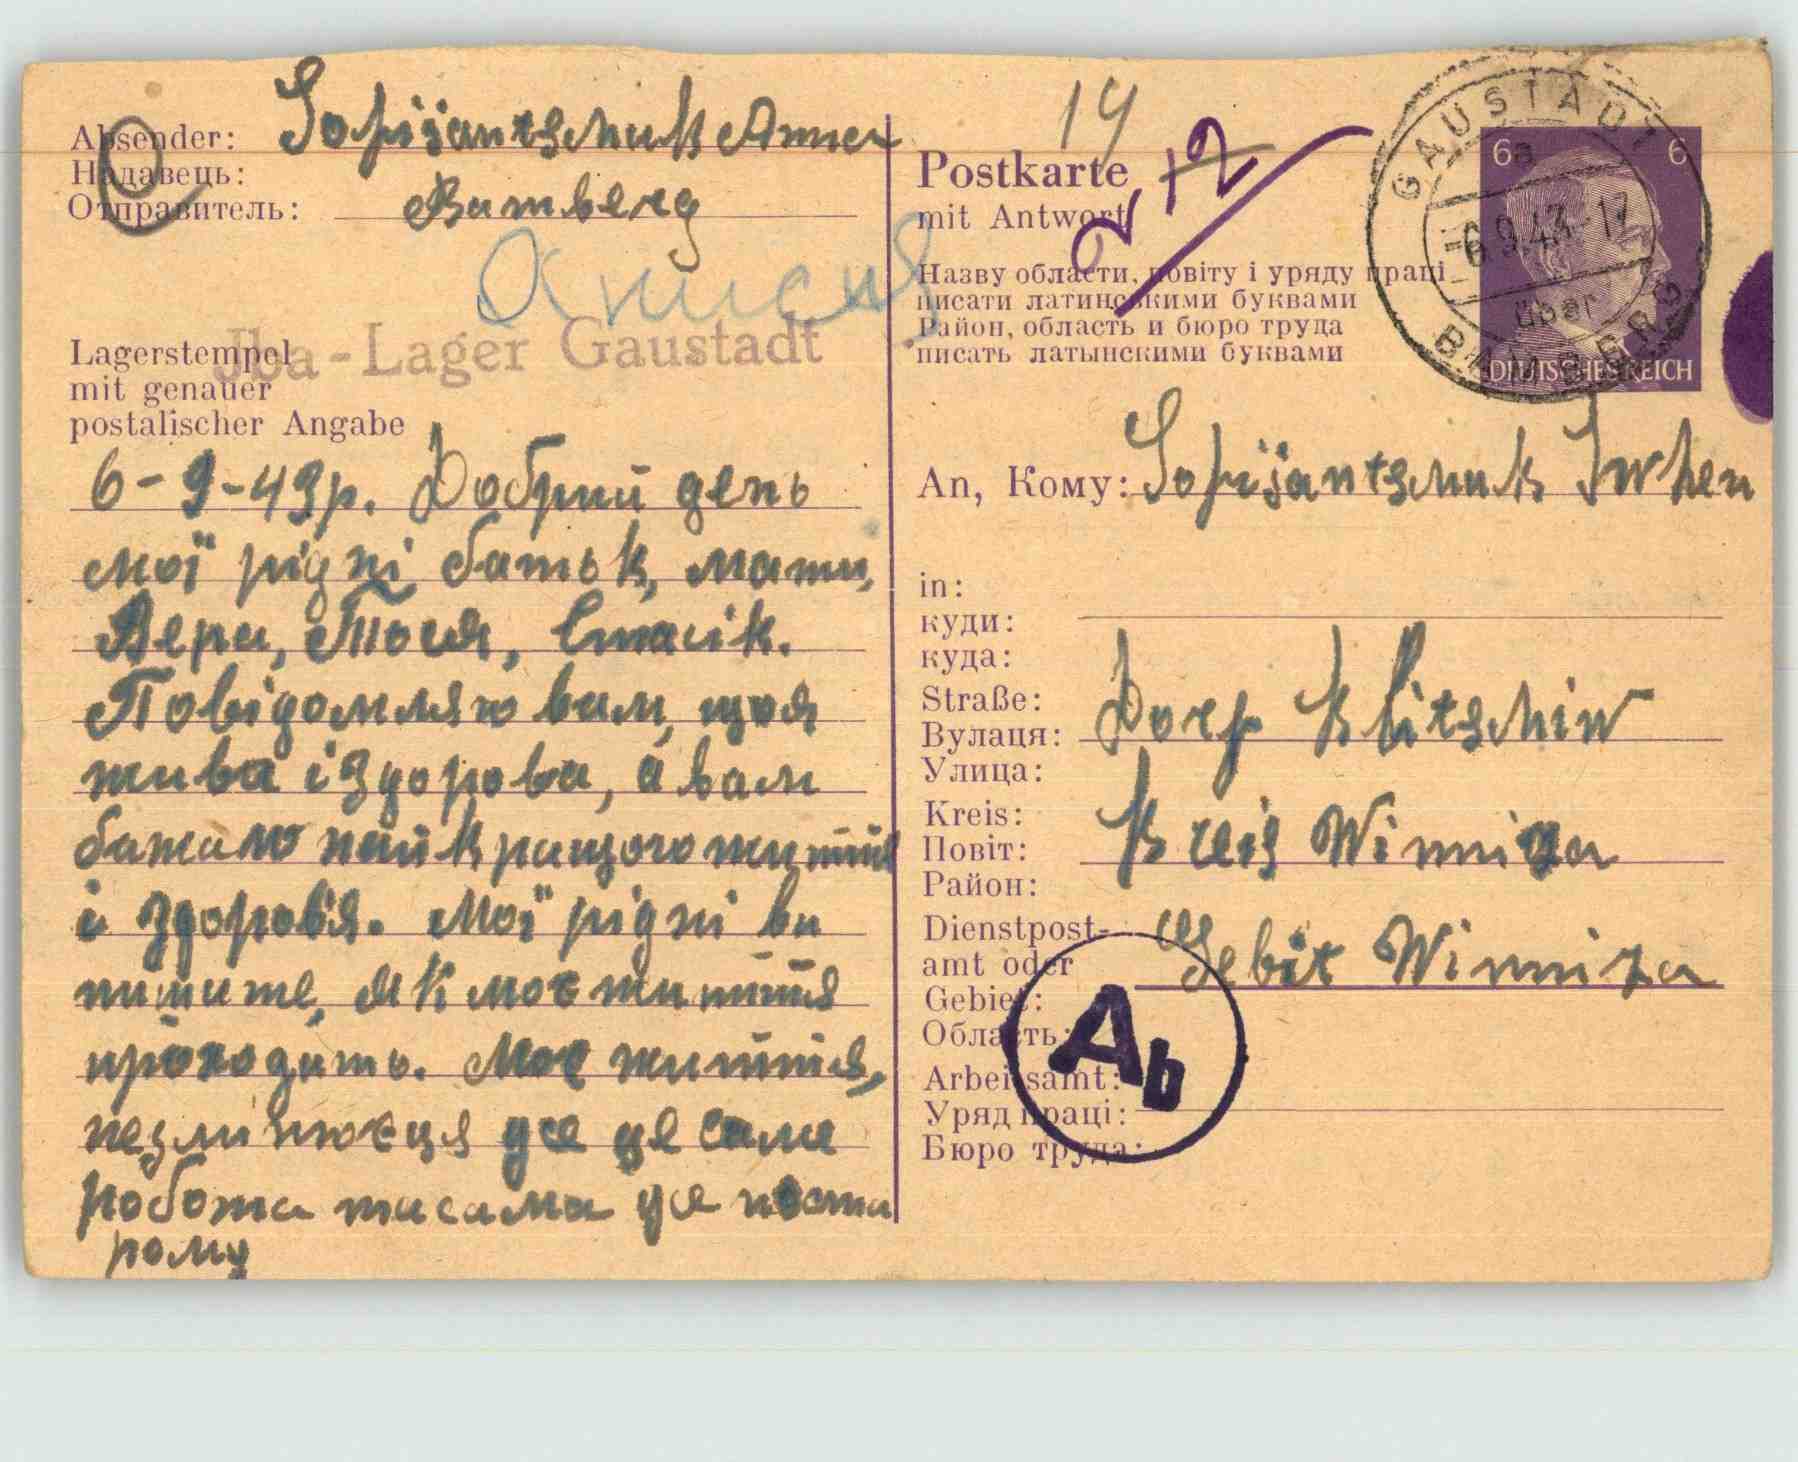 Absender: Sofijantschuk Anna
Надавець:
Отправитель: Bamberg
Анисия
Jba-Lager Gaustadt
Lagerstempel
mit genauer
postalischer Angabe
6-9-43р. Добрий день
мої рідні батьк, мати,
Вера, Тося, Стасік.
Повідомляю вам, що я
жива і здорова, а вам
бажаю найкращого життя
і здоров'я. Мої рідні ви
пишите, як моє життя
проходить. Моє життя,
незминюєця усе це саме
робота тасама усе поста
рому
14
Postkarte
mit Antwort
12
Назву области, повіту і уряду праці
писати латинськими буквами
Район, область и бюро труда
писать латынскими буквами
GAUSTADT
a
6.9.43.-17
über
BAMBERG
6 6
DEUTSCHES REICH
An, Кому: Sofijantschuk Iwhen
in:
куди:
куда:
Straße:
Вулаця: Dorf Klitschiw
Улица:
Kreis:
Повіт: Kreis Winniza
Район:
Dienstpost-
amt oder Gebit Winniza
Gebiet:
Область:
Ab
Arbeitsamt:
Уряд праці:
Бюро труда: